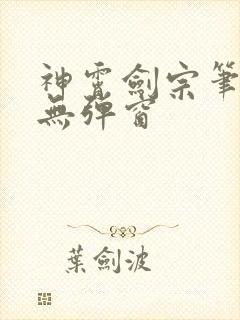 神霄劍宗筆
無彈窗
葉劍波